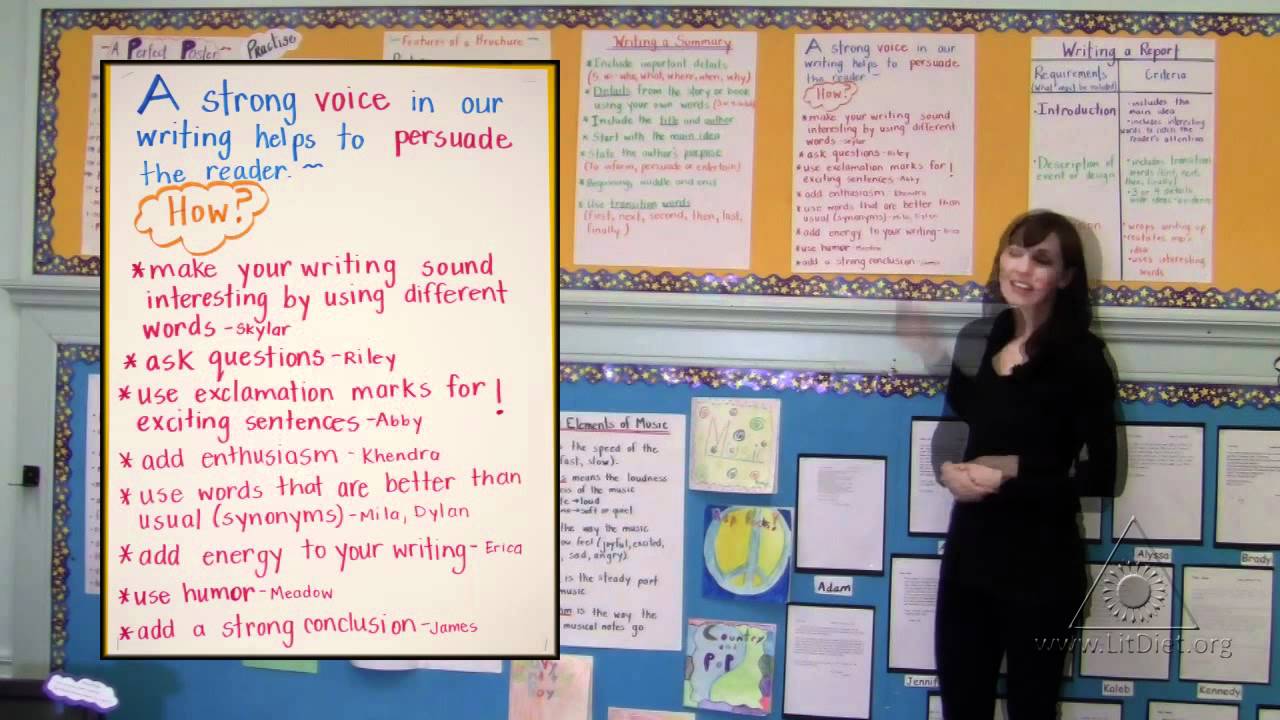 A Perfect Poster
Practise
Features of a Brochure
A strong voice in our
writing helps to persuade
the reader. ~
How?
*make your writing sound
interesting by using different
words -Skylar
* ask questions -Riley
* use exclamation marks for !
exciting sentences -Abby
* add enthusiasm - Khendra
* use words that are better than
usual (synonyms) -Mila, Dylan
* add energy to your writing- Erica
*use humor -Meadow
*add a strong conclusion -James
Writing a Summary
*Include important details
(5 w- who, what, where, when, why)
*Details from the story or book
using your own words
*Include the title and author
* Start with the main idea
*State the author's purpose
(To inform, persuade or entertain)
*Beginning, middle and end
* Use transition words
(first, next, second, then, last,
finally)
A strong voice in our
writing helps to persuade
the reader ~
How?
*make your writing sound
interesting by using different
words -Skylar
* ask questions -Riley
* use exclamation marks for !
exciting sentences -Abby
* add enthusiasm - Khendra
* use words that are better than
usual (synonyms) -Mila, Dylan
* add energy to your writing- Erica
*use humor -Meadow
*add a strong conclusion -James
Writing a Report
Requirements
(What must be included)
Criteria
•Introduction
•includes the
main idea
•includes interesting
words to catch the
reader's attention
•Description of
event or design
•includes transition
words (first, next,
then, finally)
•3 or 4 details
•wraps writing up
•restates main
idea
•uses interesting
words
Elements of Music
the speed of the
fast, slow).
means the loudness
of the music
loud
soft or quiet
the way the music
feel (joyful, excited,
sad, angry).
is the steady part
music.
is the way the
musical notes go
Country
and
Pop
Adam
Alyssa
Brady
Kaleb
Kennedy
www.LitDiet.org